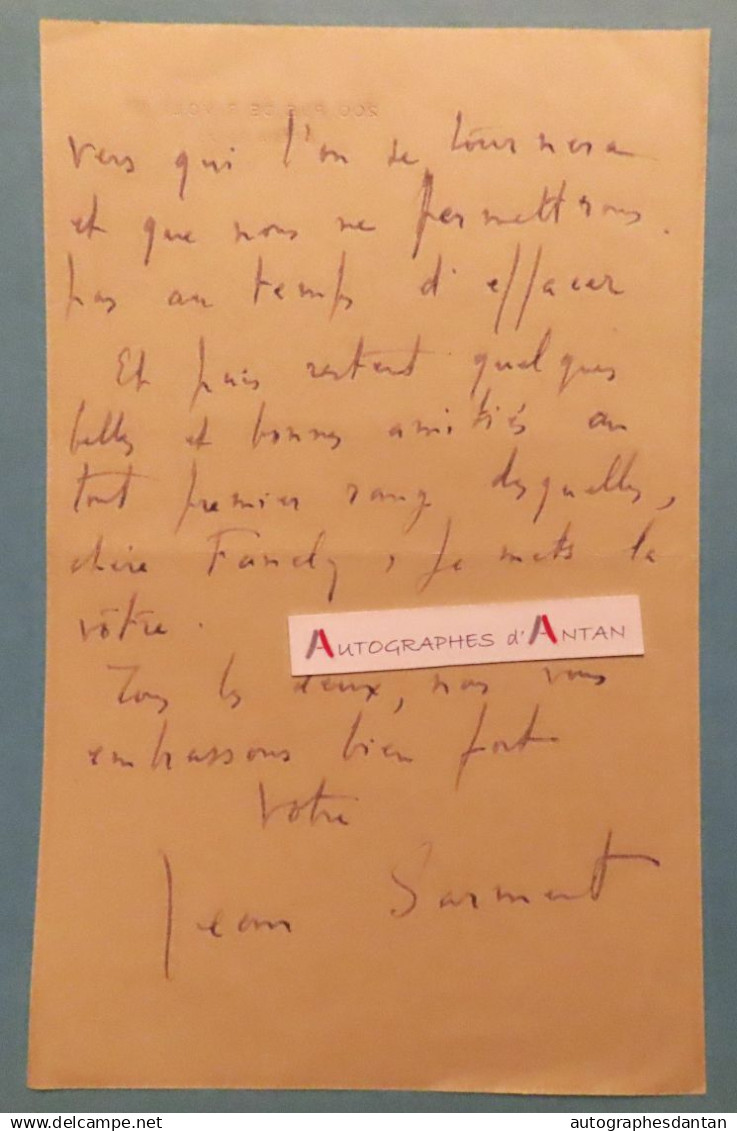 vers qui l'on se tournera
et que nous ne permettrons
pas au temps d'effacer
Et puis restent quelques
belles et bonnes amitiés au
tout premier rang desquelles,
chère Fandy, je mets la
vôtre.
AUTOGRAPHES d'ANTAN
Tous les deux, nous vous
embrassons bien fort
Votre
Jean Sarment
delcampe.net
autographesdantan